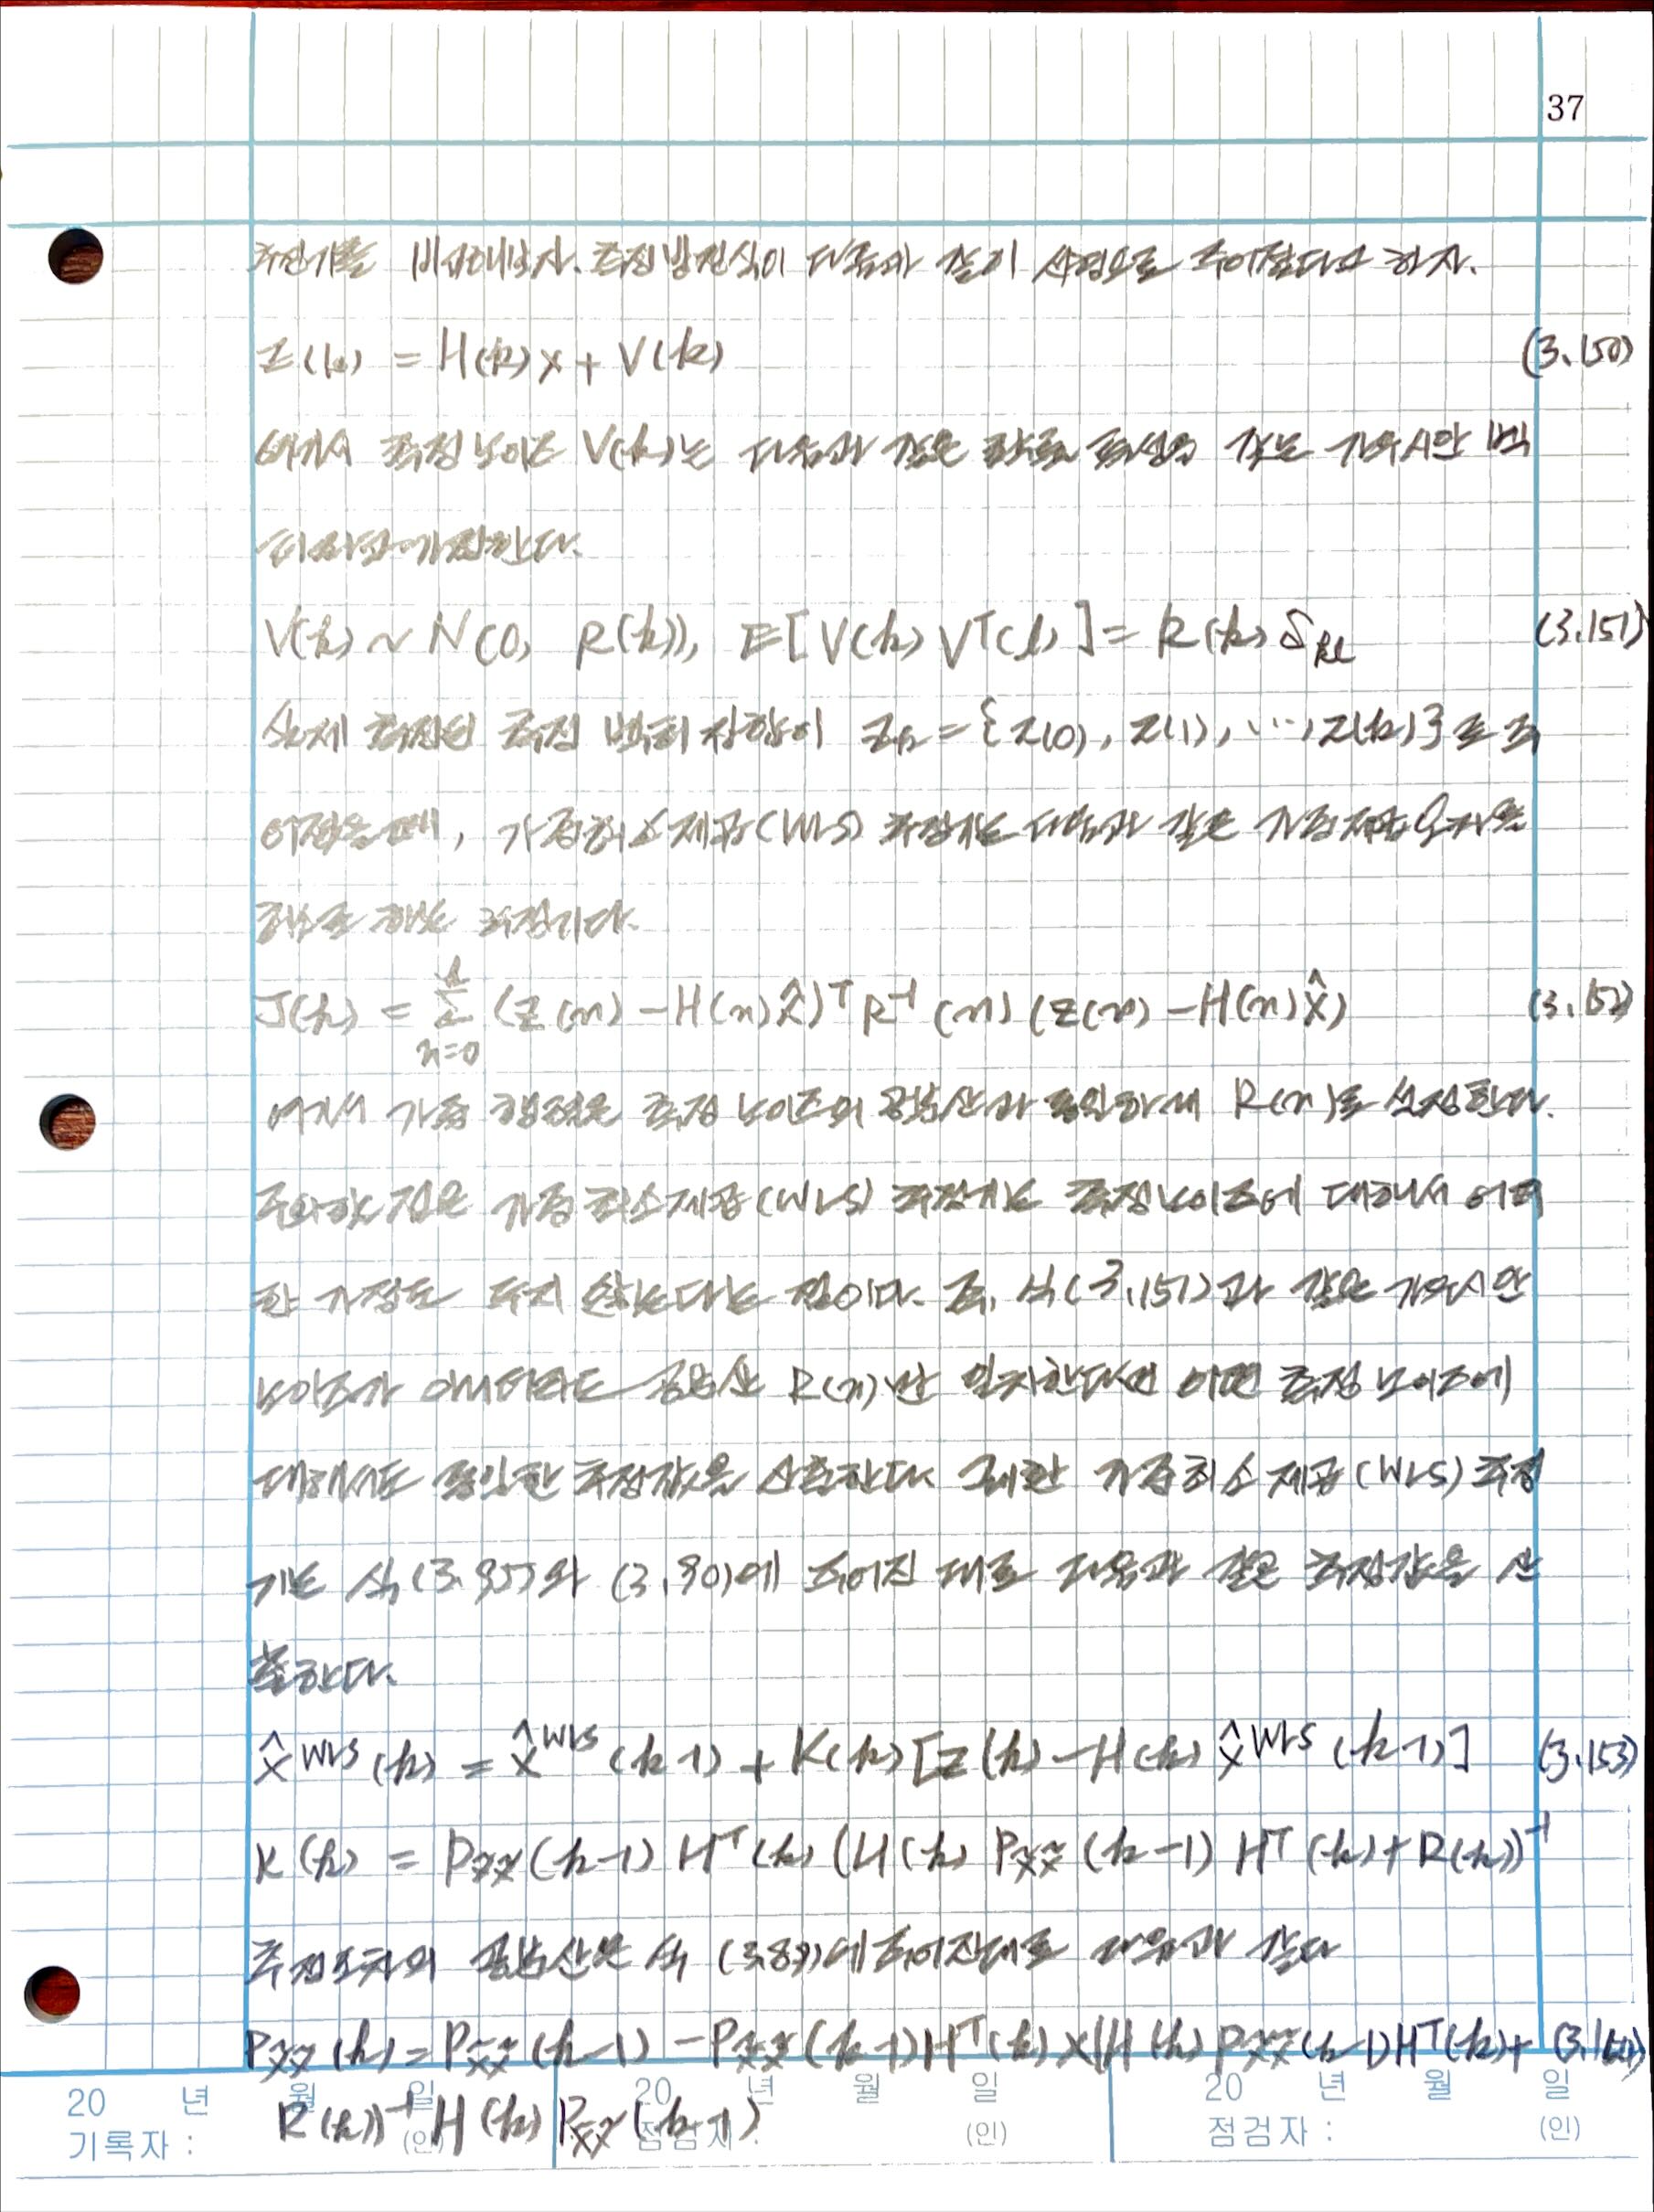 37
추정기를 비교해보자. 측정 방정식이 다음과 같이 선형으로 주어졌다고 하자.
z(k) = H(k)x + V(k) (3.150)
여기서 측정 노이즈 V(k)는 다음과 같은 확률 특성을 갖는 가우시안 벡
터라고 가정한다.
V(k) ~ N(0, R(k)), E[V(k) Vᵀ(l)] = R(k) δkl (3.151)
실제 측정된 측정 벡터 집합이 Zk = {z(0), z(1), ..., z(k)}로 주
어졌을 때, 가중최소제곱(WLS) 추정기는 다음과 같은 가중제곱오차를
최소로 하는 추정기다.
J(k) = Σ (z(n) - H(n)x̂)ᵀ R⁻¹(n) (z(n) - H(n)x̂) (3.152)
n=0
여기서 가중 행렬은 측정 노이즈의 공분산과 동일하게 R(n)로 설정한다.
주의할 점은 가중최소제곱(WLS) 추정기는 측정 노이즈에 대해서 어떠
한 가정도 두지 않는다는 점이다. 즉, 식(3.151)과 같은 가우시안
노이즈가 아니더라도 공분산 R(n)만 일치한다면 어떤 측정 노이즈에
대해서도 동일한 추정값을 산출한다. 그러한 가중최소제곱(WLS) 추정
기는 식(3.95)와 (3.90)에 주어진 대로 다음과 같은 추정값을 산
출한다.
x̂ᵂᴸˢ(k) = x̂ᵂᴸˢ(k-1) + K(k)[z(k) - H(k) x̂ᵂᴸˢ(k-1)] (3.153)
K(k) = Px̃x̃(k-1) Hᵀ(k) (H(k) Px̃x̃(k-1) Hᵀ(k) + R(k))⁻¹
추정오차의 공분산은 식 (3.89)에 주어진대로 다음과 같다
Px̃x̃(k) = Px̃x̃(k-1) - Px̃x̃(k-1)Hᵀ(k) × (H(k) Px̃x̃(k-1)Hᵀ(k) + (3.154)
R(k))⁻¹ H(k) Px̃x̃(k-1)
20 년 월 일 20 년 월 일 20 년 월 일
기록자 : (인) 점검자 : (인) 점검자 : (인)